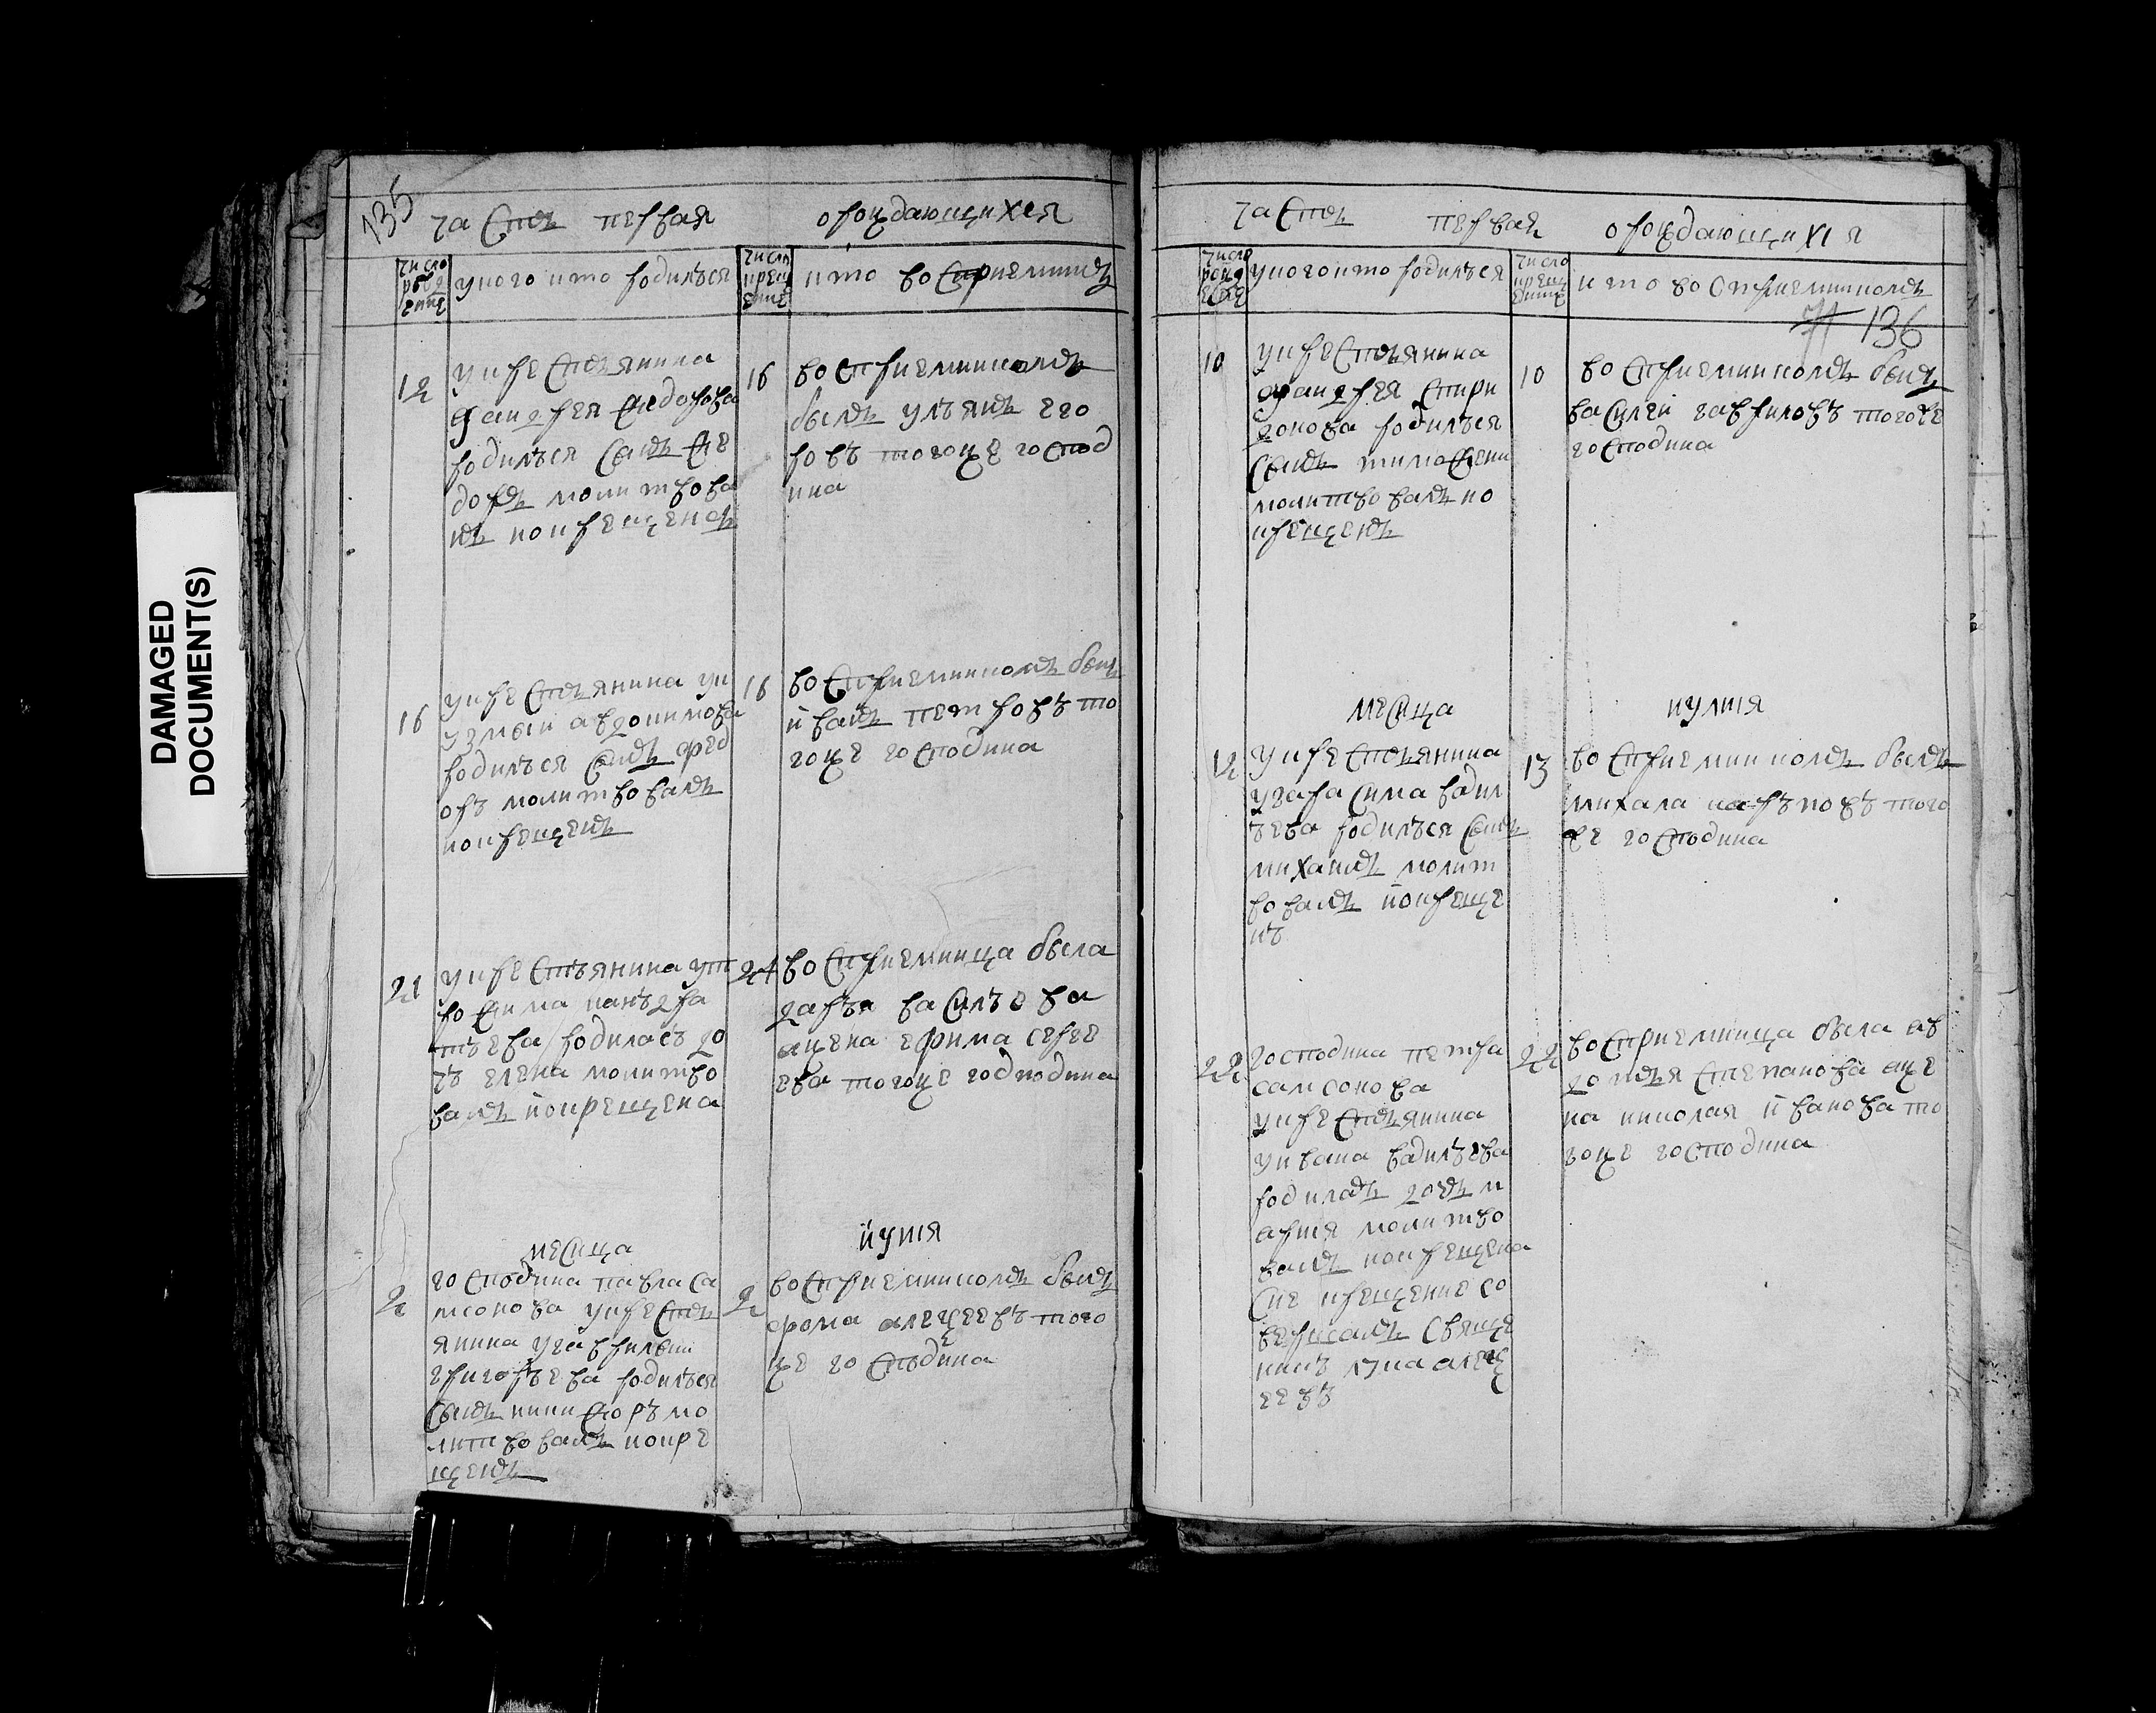 135
часть первая о рождающихся
число рождениe
у кого кто родился
число крещение
кто восприемник
12
у крестьянина
родился сын фе
доръ молитвова
нъ и окрещенъ
16
восприемникомъ
былъ ульянъ его
ровъ того же господ
ина
16
у крестьянина ку
зьмы
родился сынъ фед
оръ молитвовалъ
и окрещенъ
16
восприемникомъ былъ
иванъ петровъ то
го же господина
21
у крестьянина ут
рофима кандра
тьева родилась до
чь елена молитво
валъ и окрещена
24
восприемница была
дарья васильева
жена ефима серге
ева того же годподина
месица июня
2
господина павла са
мсонова у крест
янина у гаврилы
григорьева родился
сынъ никифоръ мо
литвовалъ и окре
щенъ
2
восприемникомъ былъ
фома алецеевъ того
же господина
DAMAGED
DOCUMENT(S)
часть первая о рождающихся
у кого кто родился
число крещение
кто восприемникомъ
136
10
у крестьянина
андрея спири
донова родился
сынъ тимофеи
молитвовалъ и о
крещенъ
10
восприемникомъ былъ
василеи гавриловъ того же
господина
месица иулия
12
у крестьянина
у гарасима
родился сынъ
михаилъ молит
вовалъ и окреще
нъ
13
восприемникомъ былъ
михала карповъ того
же господина
22
господина петра
самсонова
у крестьянина
у ивана
родилась дочь м
ария молитво
валъ и окрещена
сие крещение со
вершалъ свяще
никъ лука алец
еевъ
22
восприемница была ев
дотья степанова жe
на николая иванова то
го же господина